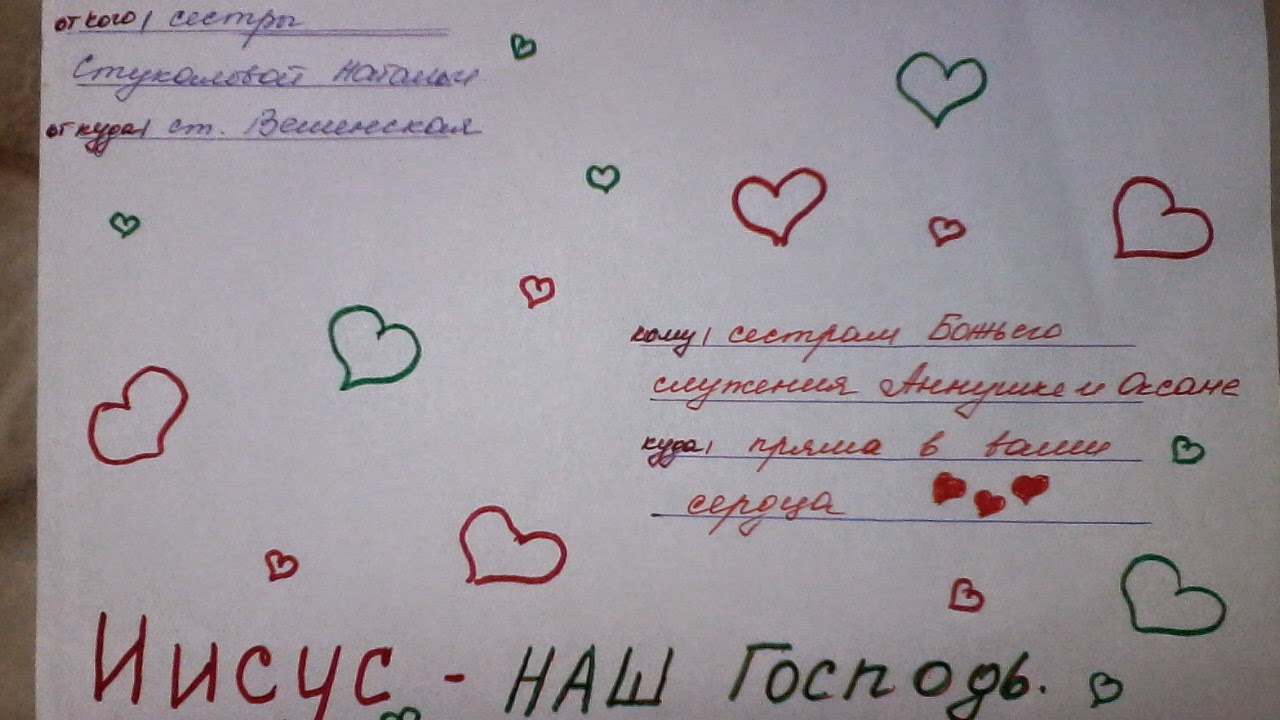 от кого/ сестры
Стукаловой Натальи
от куда/ ст. Вешенская
кому/ сестрам Божьего
служения Аннушке и Оксане
куда/ пряма в ваши
сердца
Иисус - НАШ Господь.